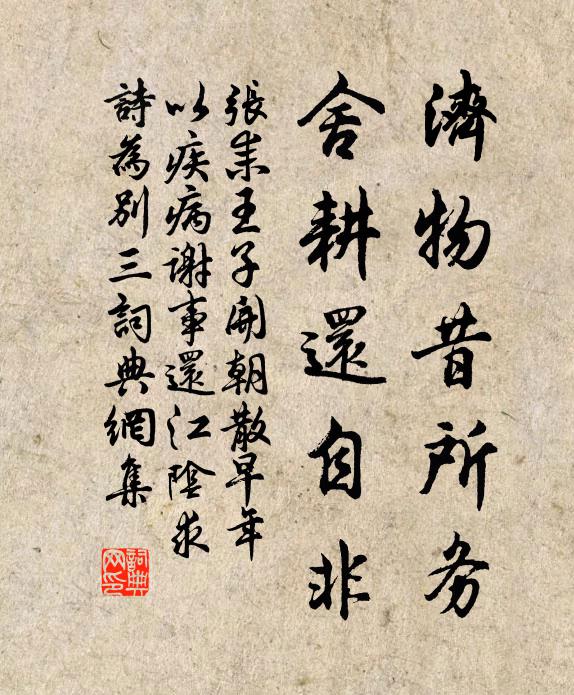 濟物昔所务
舍耕還自非
張耒王子開朝散早年
以疾病谢事還江陰求
詩為别三詞典網集
詞典网印